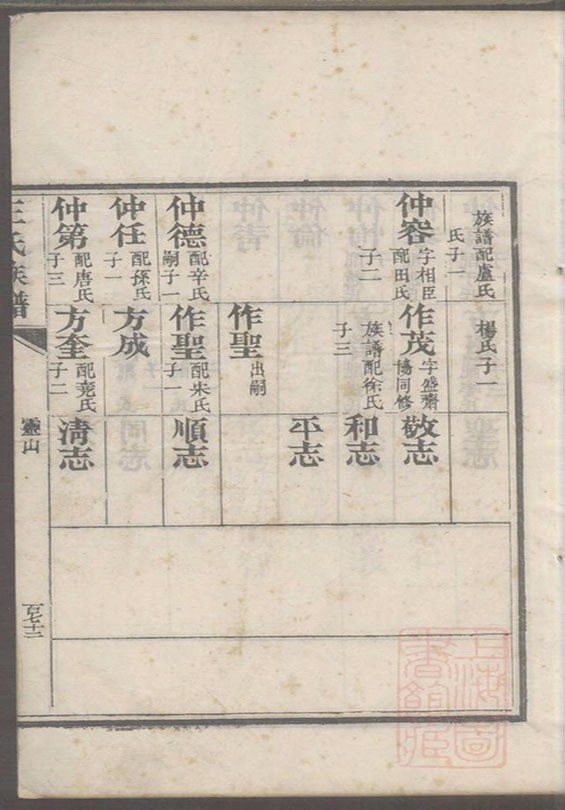 族譜配盧氏
氏子一
楊氏子一
仲容
字相臣
配田氏
子二
作茂
字盛齋
協同修
族譜配徐氏
子三
敬志
和志
平志
作聖
出嗣
仲德
配辛氏
嗣子一
作聖
配朱氏
子一
順志
仲任
配孫氏
子一
方成
仲第
配唐氏
子三
方奎
配堯氏
子二
清志
王氏族譜
靈山
上海圖
書館藏